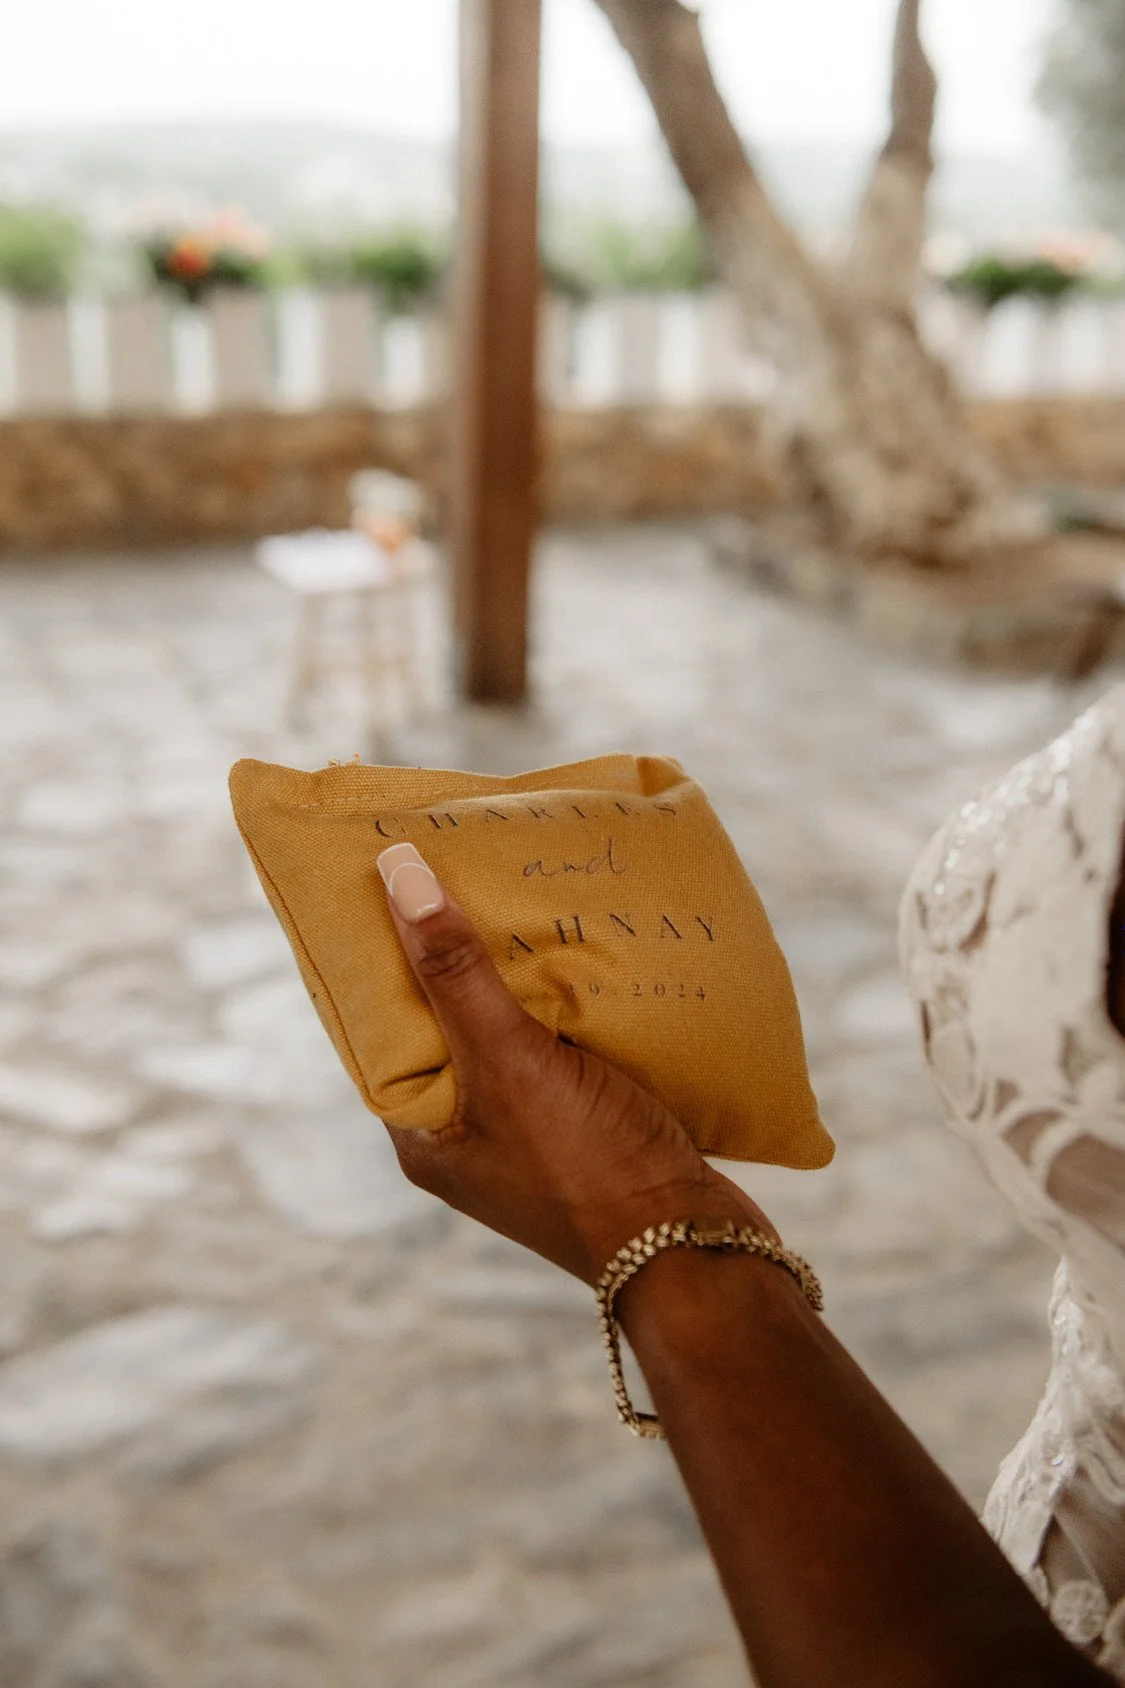 CHARLES
and
AHNAY
9.2024